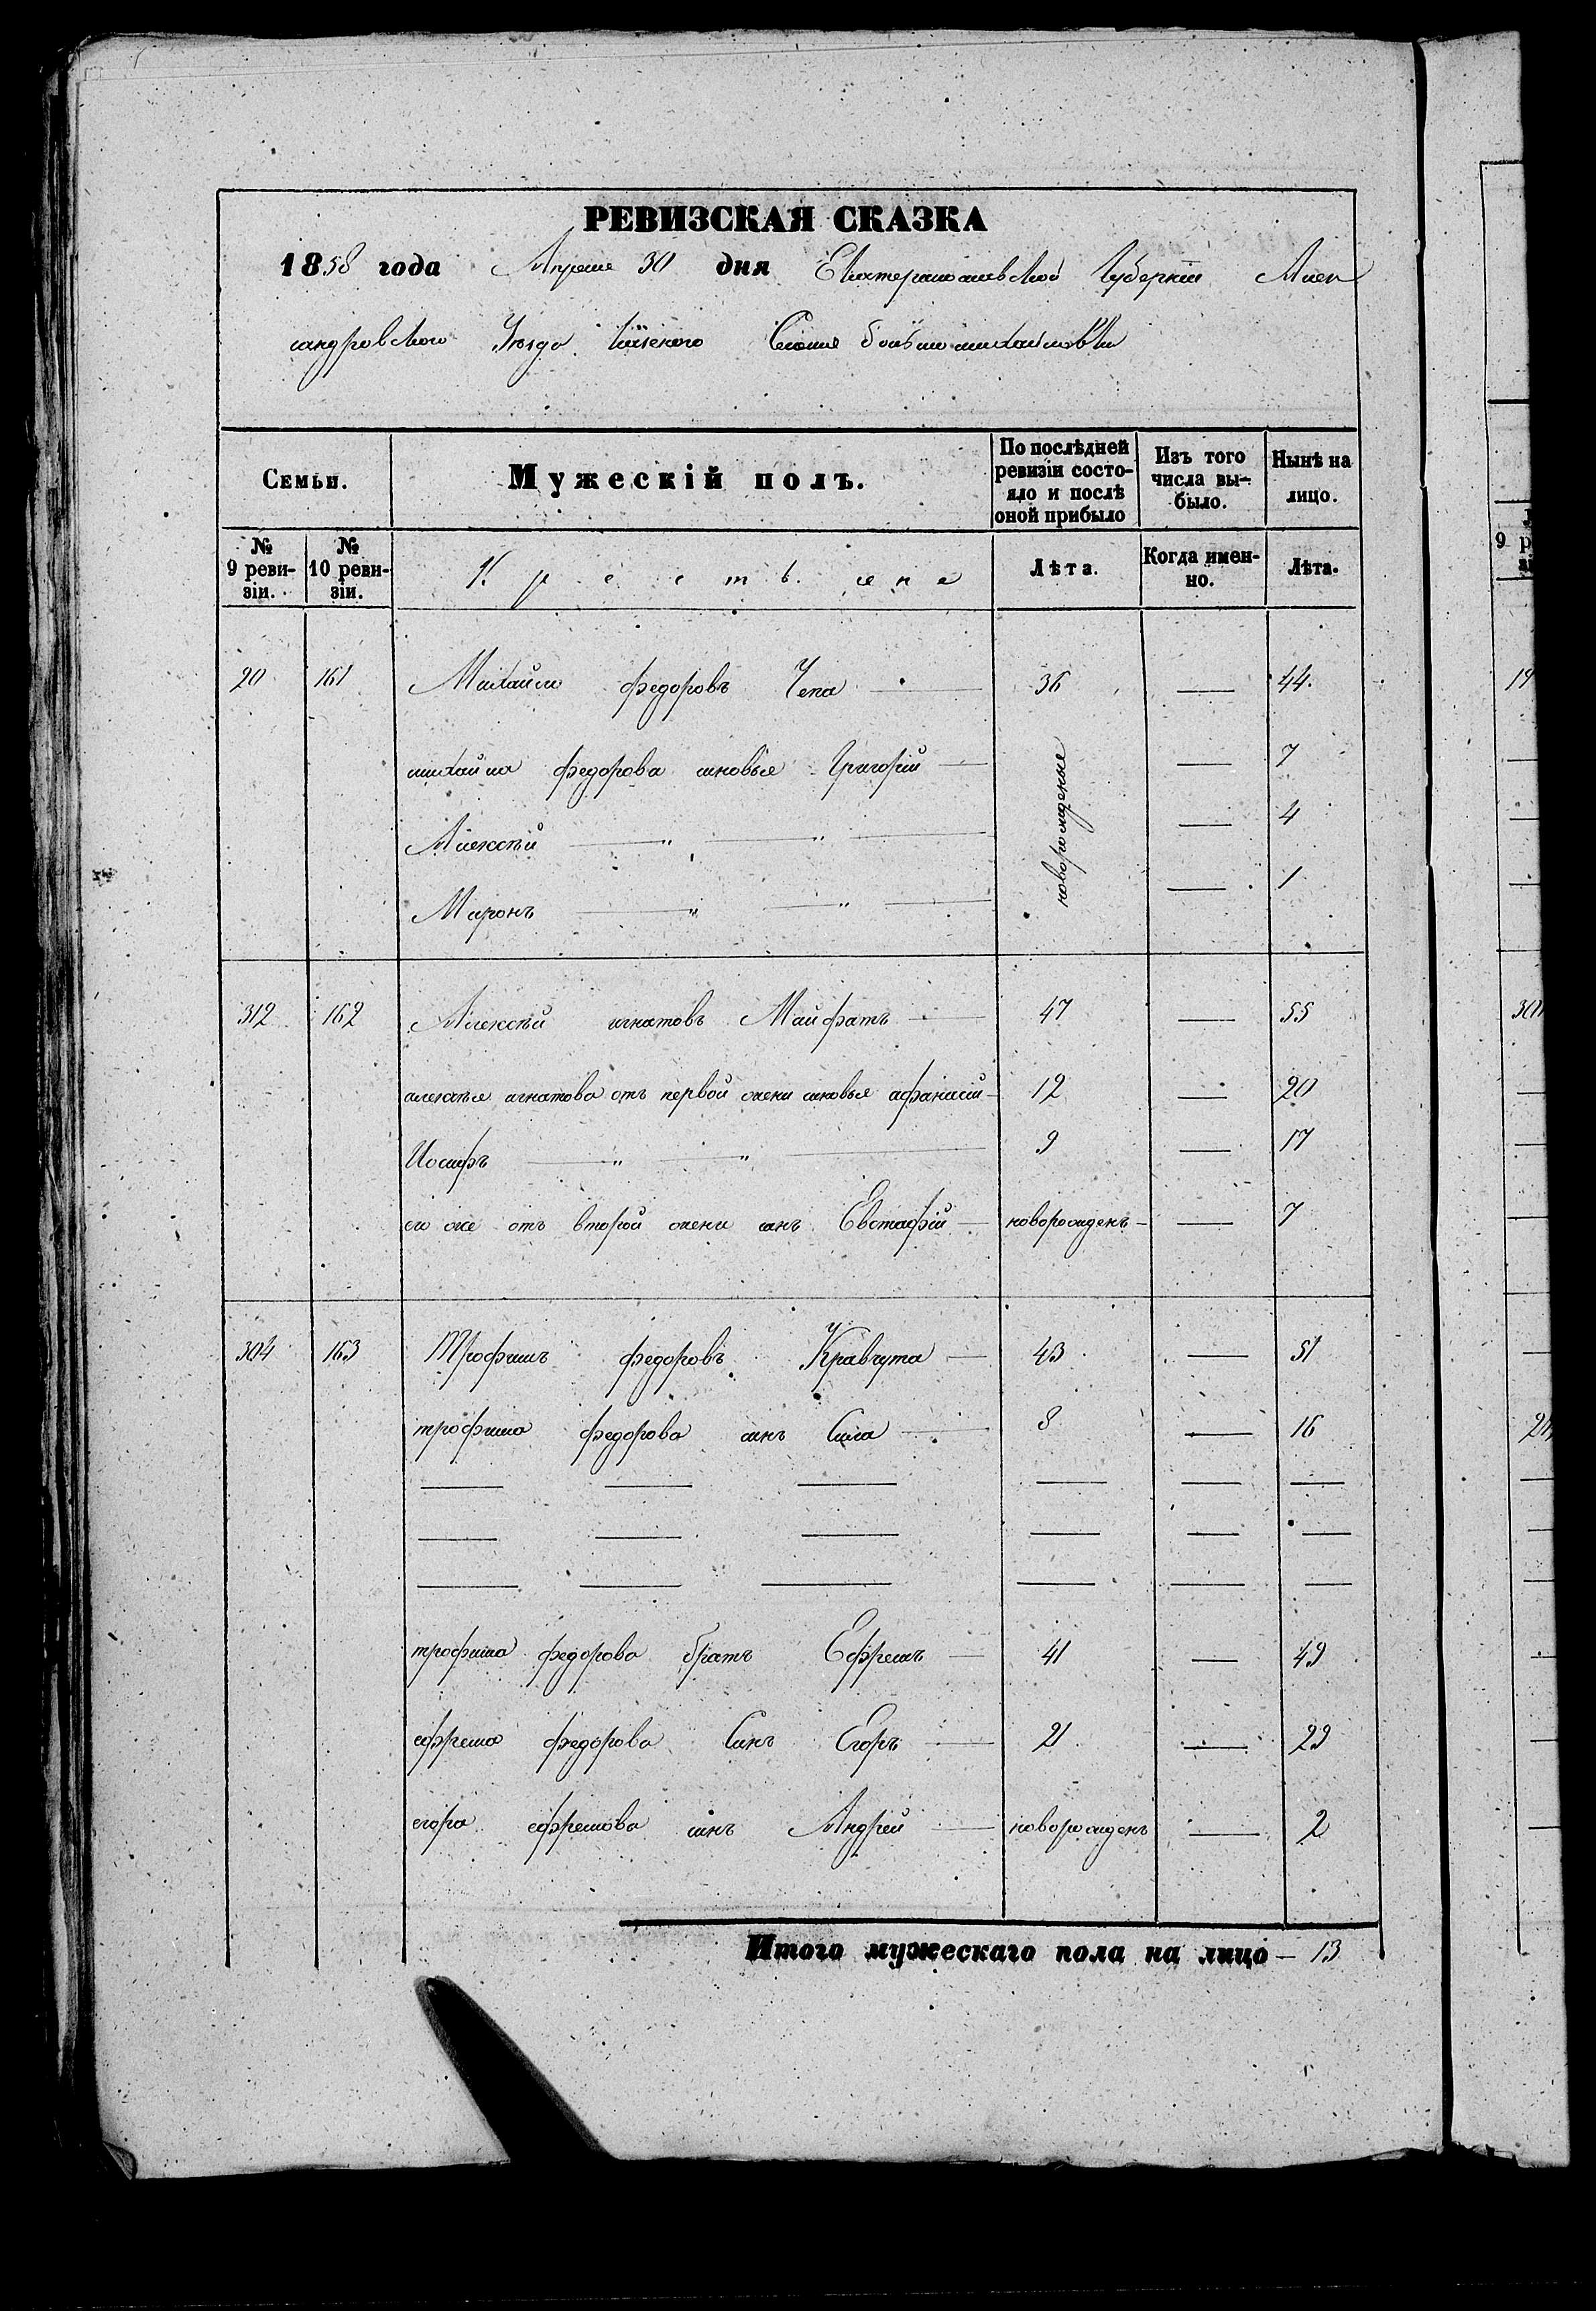 РЕВИЗСКАЯ СКАЗКА
1858 года Апреля 30 дня Екатеринославской Губернии Алек
сандровского Уезда Селения большомихайловки
Семьи. Мужескій полъ. По послѣдней ревизіи состояло и послѣ оной прибыло Изъ того числа вы-было. Нынѣ на лицо.
№ 9 реви-зіи. № 10 реви-зіи. Крестьяне Лѣта. Когда имен-но. Лѣта.
20 161 Михайло федоровъ Чепа — 36 — 44.
михайла федорова сновья Григорій — новорожденые — 7
Алексѣй — „ — „ — — 4
Миронъ — „ — „ — — 1
312 162 Алексѣй игнатовъ Майфатъ — 47 — 55
алексѣя игнатова отъ первой жени сновья афанасій — 12 — 20
Иосифъ — „ — „ — 9 — 17
его же отъ второй жени синъ Евстафій — новорожденъ — — 7
304 163 Трофимъ федоровъ Кравчута — 43 — 51
трофима федорова синъ Сила — 8 — 16
— — — — — —
— — — — — —
— — — — — —
трофима федорова братъ Ефремъ — 41 — 49
ефрема федорова Синъ Егоръ — 21 — 29
егора ефремова синъ Андрей — новорожденъ — 2
Итого мужескаго пола на лицо — 13